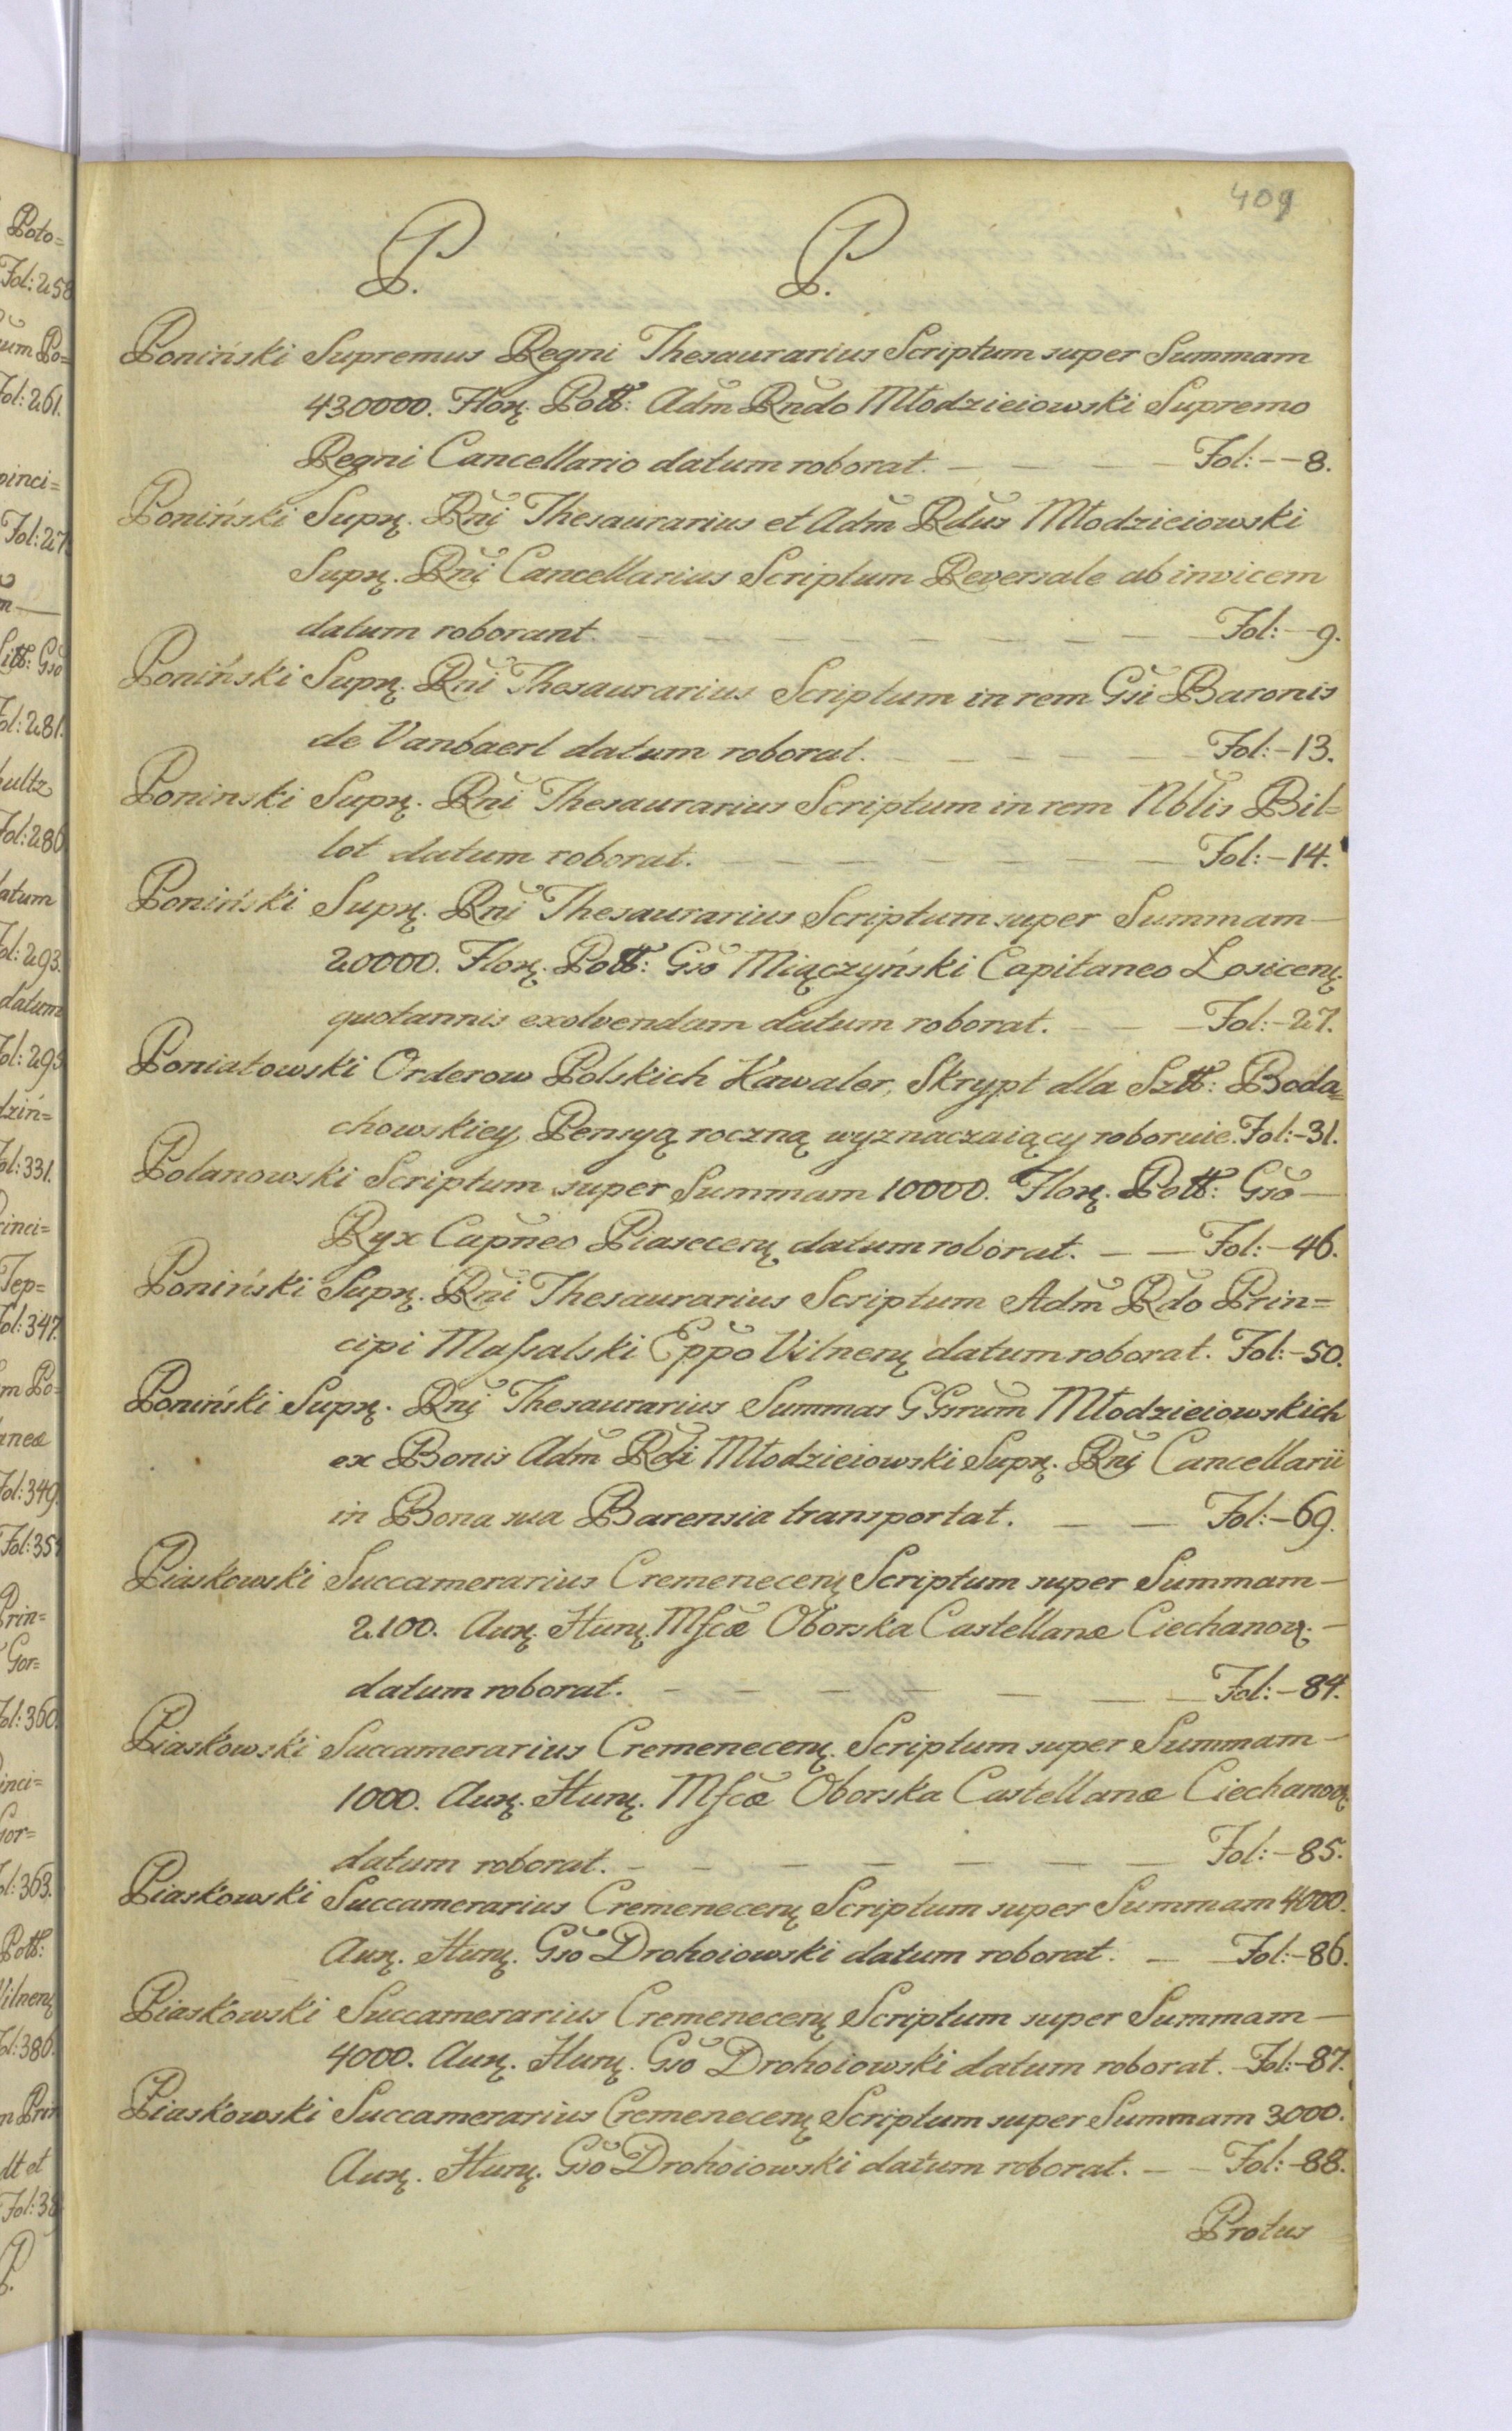 409
P. P.
Poniński Supremus Regni Thesaurarius Scriptum super Summam
430000. Flor. Poll: Adm Rndo Młodzieiowski Supremo
Regni Cancellario datum roborat. Fol: 8.
Poniński Supr. Rni Thesaurarius et Adm Rdus Młodzieiowski
Supr. Rni Cancellarius Scriptum Reversale ab invicem
datum roborant. Fol: 9.
Poniński Supr. Rni Thesaurarius Scriptum in rem Gsi Baronis
de Vanbaerl datum roborat. Fol: 13.
Poninski Supr. Rni Thesaurarius Scriptum in rem Nblis Bil=
lot datum roborat. Fol: 14.
Poniński Supr. Rni Thesaurarius Scriptum super Summam
20000. Flor. Poll: Gso Miączyński Capitaneo Losicen.
quotannis exolvendam datum roborat. Fol: 27.
Poniatowski Orderow Polskich Kawaler, Skrypt dla Szll: Boda=
chowskiey, Pensyą roczną wyznaczaiący roboruie. Fol: 31.
Polanowski Scriptum super Summam 10000. Flor. Poll: Gso
Ryx Capneo Piasecen. datum roborat. Fol: 46.
Poniński Supr. Rni Thesaurarius Scriptum Adm Rdo Prin=
cipi Massalski Eppo Vilnen. datum roborat. Fol: 50.
Poniński Supr. Rni Thesaurarius Summas GGsrum Młodzieiowskich
ex Bonis Adm Rdi Młodzieiowski Supr. Rni Cancellarii
in Bona sua Barensia transportat. Fol: 69.
Piaskowski Succamerarius Cremenecen. Scriptum super Summam
2100. Aur. Hun. Mfcæ Oborska Castellanæ Ciechanov.
datum roborat. Fol: 84.
Piaskowski Succamerarius Cremenecen. Scriptum super Summam
1000. Aur. Hun. Mfcæ Oborska Castellanæ Ciechanov.
datum roborat. Fol: 85.
Piaskowski Succamerarius Cremenecen. Scriptum super Summam 4000.
Aur. Hun. Gso Drohoiowski datum roborat. Fol: 86.
Piaskowski Succamerarius Cremenecen. Scriptum super Summam
4000. Aur. Hun. Gso Drohoiowski datum roborat. Fol: 87.
Piaskowski Succamerarius Cremenecen. Scriptum super Summam 3000.
Aur. Hun. Gso Drohoiowski datum roborat. Fol: 88.
Protus